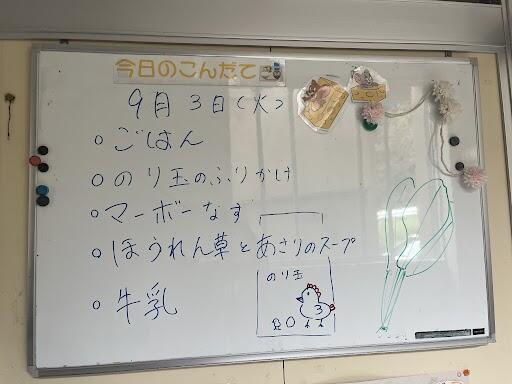 今日のこんだて
9月3日(火)
○ごはん
○のり玉のふりかけ
○マーボーなす
○ほうれん草とあさりのスープ
のり玉
3
○牛乳